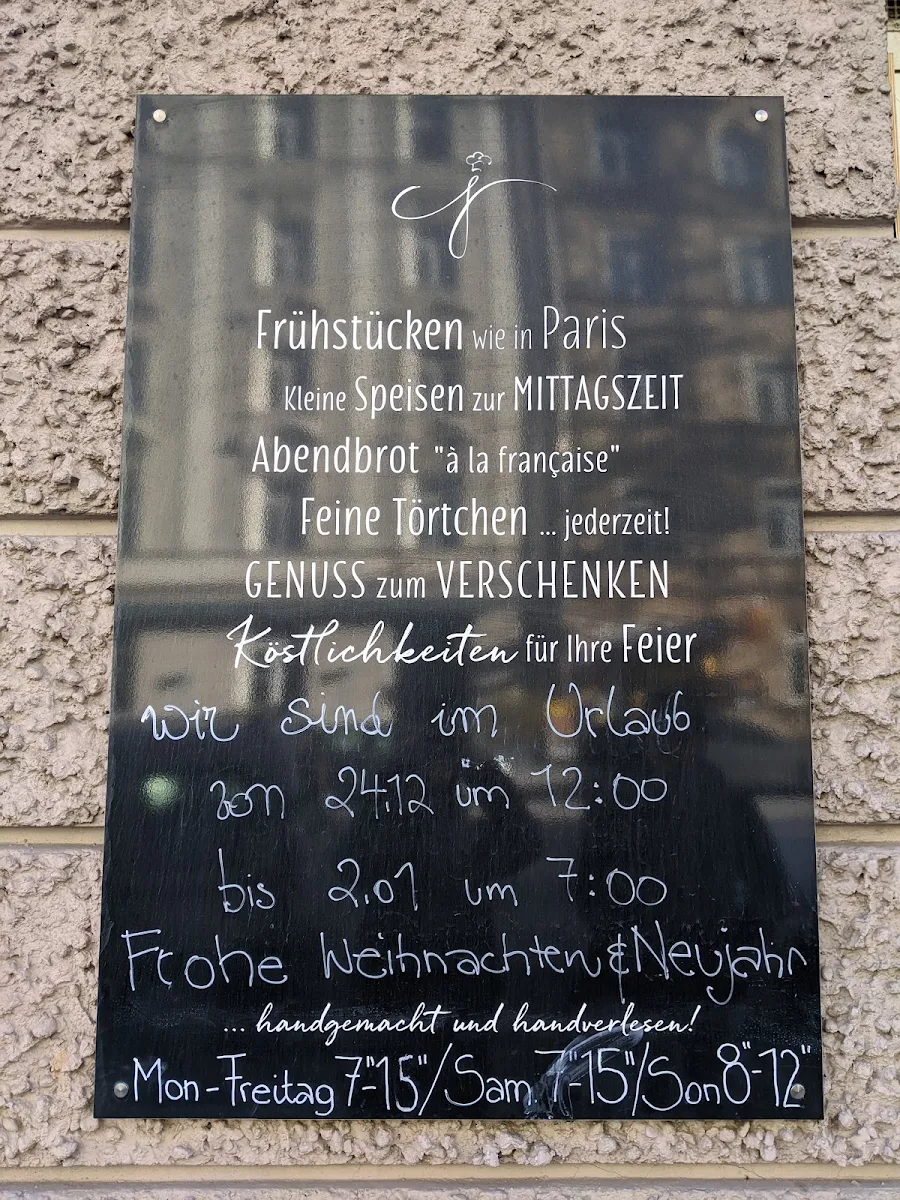 Frühstücken wie in Paris
Kleine Speisen zur MITTAGSZEIT
Abendbrot "à la française"
Feine Törtchen ... jederzeit!
GENUSS zum VERSCHENKEN
Köstlichkeiten für Ihre Feier
wir sind im Urlaub
von 24.12 um 12:00
bis 2.01 um 7:00
Frohe Weihnachten & Neujahr
... handgemacht und handverlesen!
Mon-Freitag 7"-15"/Sam. 7"-15"/Son 8"-12"